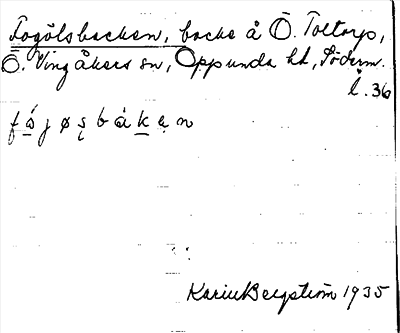 Fogölsbacken, backe å Ö. Toltorp,
Ö. Vingåkers sn, Oppunda hd, Söderm.
l. 36
fåjøsbåkẹn
Karin Bergström 1935